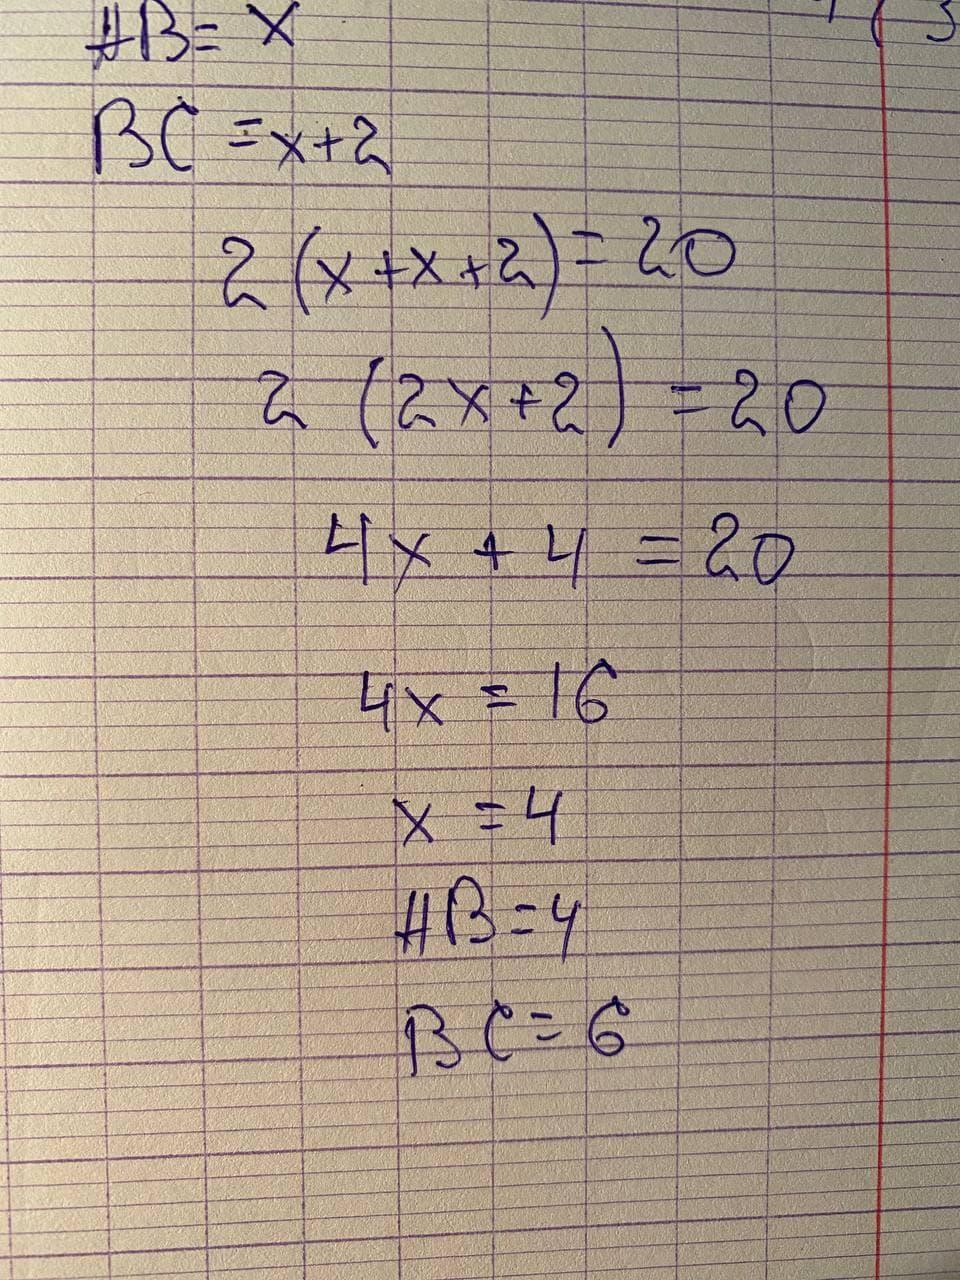 AB = x
BC = x+2
2 (x+x+2) = 20
2 (2x+2) = 20
4x + 4 = 20
4x = 16
x = 4
AB = 4
BC = 6